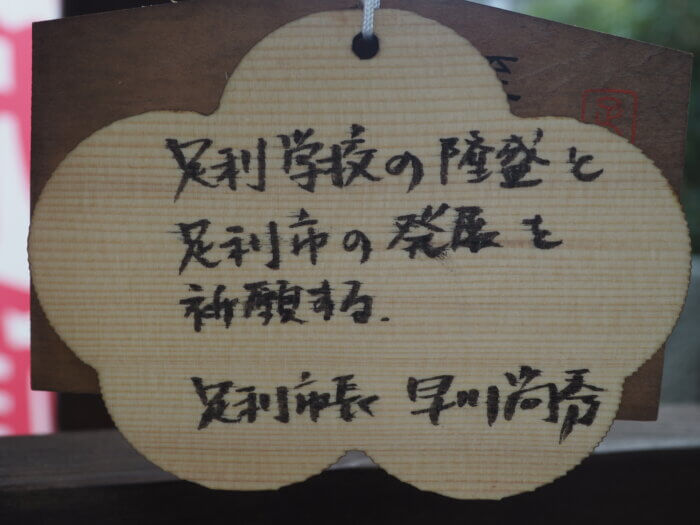 足利学校の隆盛と
足利市の発展を
祈願する.
足利市長 早川尚秀